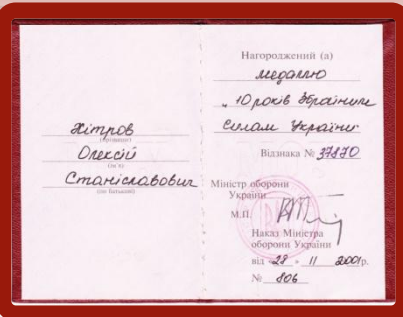 Хітров
(прізвище)
Олексій
(ім'я)
Станіславович
(по батькові)
Нагороджений (а)
медаллю
„10 років Збройним
Силам України"
Відзнака № 37870
Міністр оборони
України
М.П.
Наказ Міністра
оборони України
від «28» 11 2001р.
№ 806